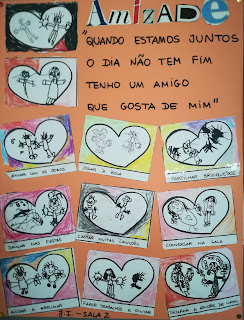 AMIZADE
"QUANDO ESTAMOS JUNTOS
O DIA NÃO TEM FIM
TENHO UM AMIGO
QUE GOSTA DE MIM"
JOGAR À BOLA
PARTILHAR BRINQUEDOS
DANÇAR NAS FESTAS
CANTAR MUITAS CANÇÕES
CONVERSAR NA SALA
AJUDAR A ARRUMAR
FAZER TRABALHOS E
A ÁRVORE DE NATAL
J.I. - SALA 2